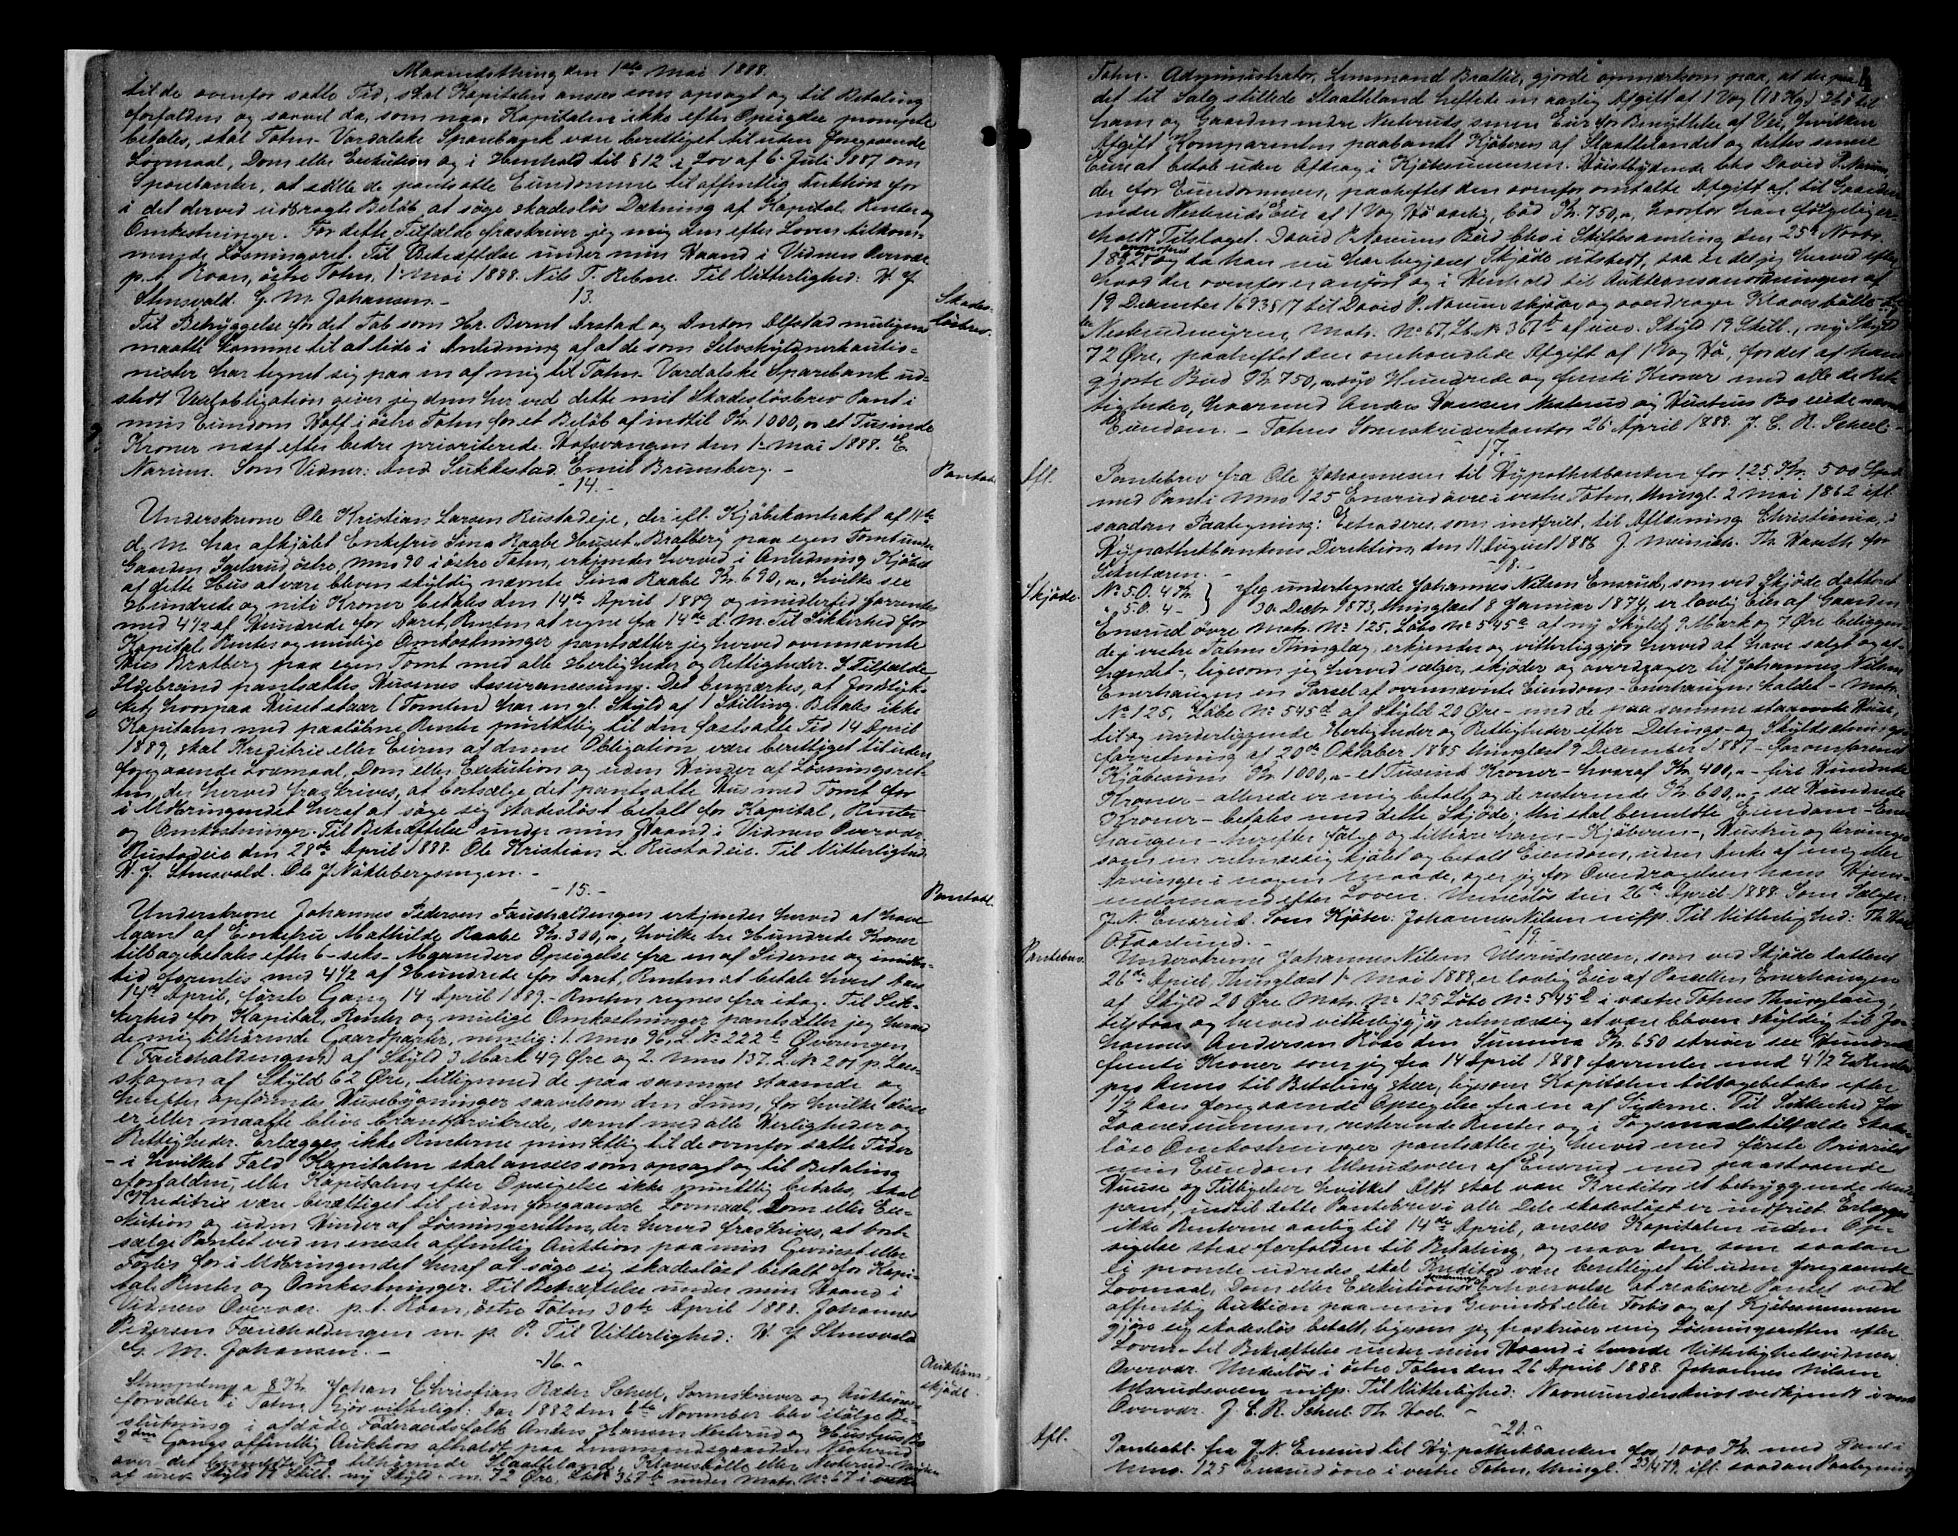 Maanedsthing den 1ste Mai 1888.
til de ovenfor satte Tid, skal Kapitalen ansees som opsagt og til Betaling
forfalden og saavel da, som naar Kapitalen ikke efter Opsigelse prompte
betales, skal Toten-Vardalske Sparebank være berettiget til uden foregaaende
Lovmaal, Dom eller Exekution og i Henhold til § 12 i Lov af 6. Juli 1887 om
Sparebanker, at stille de pantsatte Eiendomme til offentlig Auktion for
i det derved udbragte Beløb at søge skadesløs Dækning af Kapital, Renter og
Omkostninger. For dette Tilfælde fraskriver jeg mig den efter Loven tilkom-
mende Løsningsret. Til Bekræftelse under min Haand i Vidners Overvær
p. t. Kraan, østre Toten, 1. Mai 1888. Nils T. Rebne. Til Vitterlighed: H. J.
Stensvold. G. M. Johansen.-
13.
Skades-
løsbrev.
Til Betryggelse for det Tab som Hr. Bernt Arstad og Anton Alfstad muligens
maatte komme til at lide i Anledning af at de som Selvskyldnerkautio-
nister har tegnet sig paa en af mig til Toten-Vardalske Sparebank ud-
stedt Vexelobligation giver jeg dem her ved dette mit Skadesløsbrev Pant i
min Eiendom Hoff i østre Toten for et Beløb af indtil Kr. 1000, et Tusinde
Kroner næst efter bedre prioriterede. Hofsvangen den 1. Mai 1888. E.
Narum. Som Vidner: And Sukkestad. Emil Brunsberg.-
-14.-
Pantobl.
Underskrevne Ole Kristian Larsen Rustadeie, der ifl. Kjøbekontrakt af 14de
d. M. har afkjøbt Enkefru Sina Raabe Huset Bratberg paa egen Tomt under
Gaarden Fagerlund østre, mno 90 i østre Toten, erkjender herved i Anledning Kjøbet
af dette Hus at være bleven skyldig nævnte Sina Raabe Kr. 690, hvilke sex
Hundrede og niti Kroner betales den 14de April 1889 og imidlertid forrentes
med 4 1/2 af Hundrede for Aaret, Renten at regne fra 14de d. M. Til Sikkerhed for
Kapital, Renter og mulige Omkostninger pantsætter jeg herved ovennævnte
Hus Bratberg paa egen Tomt med alle Herligheder og Rettigheder. I Tilfælde
Ildebrand pantsættes Husenes Assurancesum. Det bemærkes, at Jordstyk-
ket, hvorpaa Huset staar (Tomten) har en gl. Skyld af 1 Skilling. Betales ikke
Kapitalen med paaløbne Renter punktlig til den fastsatte Tid 14 April
1889, skal Kreditrix eller Eieren af denne Obligation være berettiget til uden
foregaaende Lovmaal, Dom eller Exekution og uden Hinder af Løsningsret-
ten, der herved fraskrives, at bortsælge det pantsatte Hus med Tomt for
i Udbringendet heraf at søge sig skadesløst betalt for Kapital, Renter
og Omkostninger. Til Bekræftelse under min Haand i Vidners Overvær
Rustadeie den 28de April 1888. Ole Kristian L. Rustadeie. Til Vitterlighed
H. J. Stensvold. Ole J. Nøklebergsengen.-
-15.-
Pantobl.
Underskrevne Johannes Pedersen Faucholdengen erkjender herved at have
laant af Enkefru Mathilde Raabe Kr. 300, hvilke tre Hundrede Kroner
tilbagebetales efter 6-seks-Maaneders Opsigelse fra en af Siderne og imidler-
tid forrentes med 4 1/2 af Hundrede for Aaret, Renten at betale hvert Aars
14de April, første Gang 14 April 1889.- Renten regnes fra idag. Til Sik-
kerhed for Kapital, Renter og mulige Omkostninger pantsætter jeg herved
de mig tilhørende Gaardparter, nemlig: 1. Mno 96, L. No 222 Øverengen
(Faucholdengen) af Skyld 3 Mark 49 Øre og 2. Mno 137. L. No 201
skogen af Skyld 62 Øre, tilligemed de paa samme staaende og
herefter opførendes Husebygninger saavelsom den Sum, for hvilke disse
er eller maatte blive brandforsikrede, samt med alle Herligheder og
Rettigheder. Erlægges ikke Renterne punktlig til de ovenfor satte Tider
- i hvilket Fald Kapitalen skal ansees som opsagt og til Betaling
forfalden, eller Kapitalen efter Opsigelse ikke punktlig betales, skal
Kreditrix være berettiget til uden foregaaende Lovmaal, Dom eller Exe-
kution og uden Hinder af Løsningsretten, der herved fraskrives, at bort-
sælge Pantet ved en eneste offentlig Auktion paa min Gevinst eller
Forlis for i Udbringendet heraf at søge sig skadesløst betalt for Kapi-
tal, Renter og Omkostninger. Til Bekræftelse under min Haand i
Vidners Overvær. p. t. Kraan, østre Toten 30te April 1888. Johannes
Pedersen Faucholdengen m. p. P. Til Vitterlighed: H. J. Stensvold
G. M. Johansen.-
-16.-
Auktions-
skjøde.
Johan Christian Ræder Scheel, Sorenskriver og Auktions-
forvalter i Toten, Gjør vitterligt: Aar 1882 den 6te November blev ifølge Be-
slutning i afdøde Føderaadsfolk Anders Hansen Nesterud og Hustrus Bo
2den Gangs offentlig Auktion afholdt paa Lensmandsgaarden Nesterud
over det bemeldte Bo tilhørende Slaatteland, Klavesbølle eller Nesterud-myren
af urev. Skyld 19 Skill. ny Skyld - m. 72 Øre, Løbe 367 b under Matr. No 67 i vestre
4
Toten. Administrator, Lensmand Brattli, gjorde opmærksom paa, at der paa
det til Salg stillede Slaatteland heftede en aarlig Afgift at 1 Vog (18 Kg.) Hø til
ham og Gaarden nedre Nesteruds senere Eier for Benyttelse af Vei, hvilken
Afgift Komparenten paabandt Kjøberen af Slaattelandet og dettes senere
Eier at betale uden Afdrag i Kjøbesummen. Høistbydende blev David P. Narum,
der for Eiendommen, paaheftet den ovenfor omtalte Afgift af til Gaarden
nedre Nesteruds Eier at 1 Vog Hø aarlig, bød Kr. 750, hvorfor han følgelig er-
holdt Tilslaget. David P. Narums Bud blev i Skiftesamling den 25de Novbr.
1882 approberet og da han nu har begjæret Skjøde udstedt, saa er det jeg herved efter
hvad der ovenfor er anført og i Henhold til Auktionsanordningen af
19 December 1693 § 17 til David P. Narum skjøder og overdrager Klavesbølle el-
ler Nesterudmyren, Matr. No 67, Lb. No 367 b af urev. Skyld 19 Skill., ny Skyld
72 Øre, paaheftet den omhandlede Afgift af 1 Vog Hø, for det af ham
gjorte Bud Kr. 750, syv Hundrede og femti Kroner med alle de Ret-
tigheder, hvormed Anders Hansen Nesterud og Hustrus Bo eiede nævnte
Eiendom. - Totens Sorenskriverkontor 26 April 1888. J. C. R. Scheel-
-17.-
Afl.
Pantebrev fra Ole Johannesen til Hypothekbanken for 125 Kr. 500 Spd.
med Pant i mno 125 Ensrud øvre i vestre Toten, thingl. 2 Mai 1862 ifl.
saadan Paategning: Extraderes som indfriet til Aflæsning. Christiania, i
Hypothekbankens Direktion, den 11 August 1886 J. Meinich. Th. Haxth. for
Sekretæren.-
-18.-
Skjøde.
No 50. 4 Kr
" 50. 4 -
Jeg undertegnede Johannes Nilsen Ensrud, som ved Skjøde dateret
30. Decbr. 1873, thinglæst 8 Januar 1874, er lovlig Eier af Gaarden
Ensrud øvre Matr. No 125, Løbe No 545 a af ny Skyld 9 Mark og 7 Øre beliggen-
de i vestre Totens Thinglag, erkjender og vitterliggjør herved at have solgt og af-
hændet-, ligesom jeg herved sælger, skjøder og overdrager til Johannes Nilsen
Enerhaugen en Parsel af ovennævnte Eiendom - Enerhaugen kaldet - Matr.
No 125, Løbe No 545 d af Skyld 20 Øre - med de paa samme staaende Huse,
til og underliggende Herligheder og Rettigheder efter Delings- og Skyldsætnings-
forretning af 20de Oktober 1885 thinglæst 9 December 1887 - for omforenet
Kjøbesum Kr. 1000, - et Tusind Kroner - hvoraf Kr. 400, - fire Hundrede
Kroner - allerede er mig betalt og de resterende Kr. 600, - sex Hundrede
Kroner - betales med dette Skjøde; thi skal bemeldte Eiendom - Ener-
haugen - herefter følge og tilhøre ham - Kjøberen-, Hustru og Arvinger
som en retmæssig kjøbt og betalt Eiendom, uden Anke af mig eller
Arvinger i nogen Maade, og er jeg for Overdragelsen hans Hjem-
melsmand efter Loven. Unnesløs den 26de April 1888. Som Sælger:
J. N. Ensrud. Som Kjøber: Johannes Nilsen m. f. p. Til Vitterlighed: Th. Hoel
O. Faarlund.-
-19.-
Pantebrev.
Underskrevne Johannes Nilsen Ulsrudsveen, som ved Skjøde dateret
26de April, Thinglæst 1. Mai 1888, er lovlig Eier af Parsellen Enerhaugen
af Skyld 20 Øre Matr. No 125 Løbe No 545 d i vestre Totens Thinglaug,
tilstaar og herved vitterliggjør retmæssig at være bleven skyldig til Jo-
hannes Andersen Røise den Summa Kr. 650 skriver sex Hundrede
femti Kroner som jeg fra 14 April 1888 forrenter med 4 1/2
pro Anno til Betaling skeer, ligesom Kapitalen tilbagebetales efter
1/2 Aars foregaaende Opsigelse fra en af Siderne. Til Sikkerhed for
Laanesummen, resterende Renter og i Søgsmaalstilfælde skades-
løse Omkostninger pantsætter jeg herved med første Prioritet
min Eiendom Ulsrudsveen af Ensrud med paastaaende
Huuse og Tilligelser hvilket Alt skal være Kreditor et betryggende Under-
pant, indtil dette Pantebrev i alle Dele skadesløst er indfriet. Erlægges
ikke Renterne aarlig til 14de April, ansees Kapitalen uden Op-
sigelse strax forfalden til Betaling, og naar den, som saadan
ei promte udredes, skal Kreditor være berettiget til uden foregaaende
Lovmaal, Dom eller Exekutions Erhvervelse at realisere Pantet ved
offentlig Auktion paa min Gevinst eller Forlis og af Kjøbesummen
gjøre sig skadesløs betalt, ligesom jeg fraskriver mig Løsningsretten efter
Loven - til Bekræftelse under min Haand i tvende Vitterlighedsvidners
Overvær. Unnesløs i østre Toten den 26 April 1888. Johannes Nilsen
Ulsrudsveen m. f. p. Til Vitterlighed: Navnet underskrevet vedkjendt i vort
Overvær. J. C. R. Scheel Th. Hoel. -
-20.-
Afl.
Panteobl. fra J. N. Ensrud til Hypothekbanken for 1000 Kr. med Pant i
Mno. 125 Ensrud øvre i vestre Toten, thingl. 23/4 79. ifl. saadan Paategning